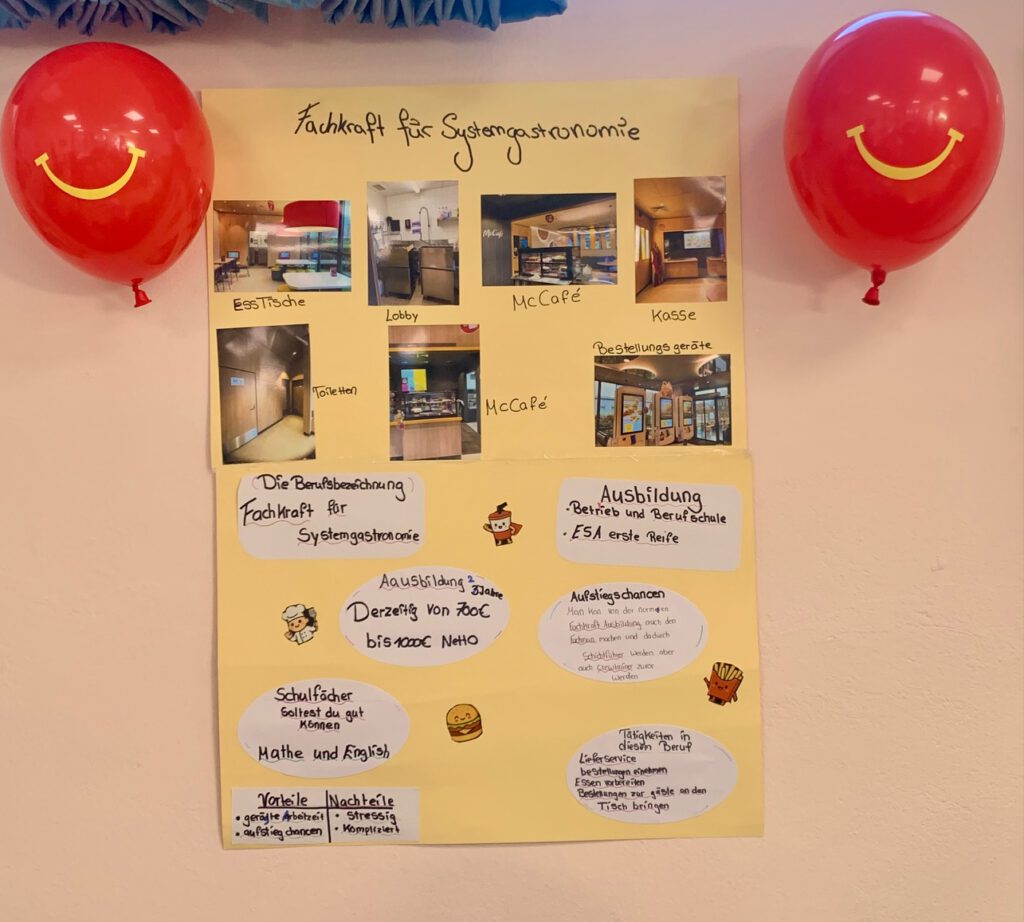 Fachkraft für Systemgastronomie
EssTische
Lobby
McCafé
McCafé
Kasse
Toiletten
McCafé
Bestellungsgeräte
Die Berufsbezeichnung
Fachkraft für
Systemgastronomie
Ausbildung
• Betrieb und Berufschule
• ESA erste Reife
Aausbildung 2 Jahre
Derzeitig von 700€
bis 1000€ Netto
Aufstiegschancen
Man kan von der normalen
Fachkraft Ausbildung auch den
Fachman machen und dadurch
Schichtführer werden aber
auch Crewtrainer zuvor
werden
Schulfächer
Soltest du gut
Können
Mathe und English
Tätigkeiten in
diesem Beruf
Lieferservice
bestellungen einehmen
Essen vorbereiten
Bestellungen zur gäste an den
Tisch bringen
Vorteile Nachteile
• Arbeitzeit • stressig
• aufstieg chancen • Kompliziert